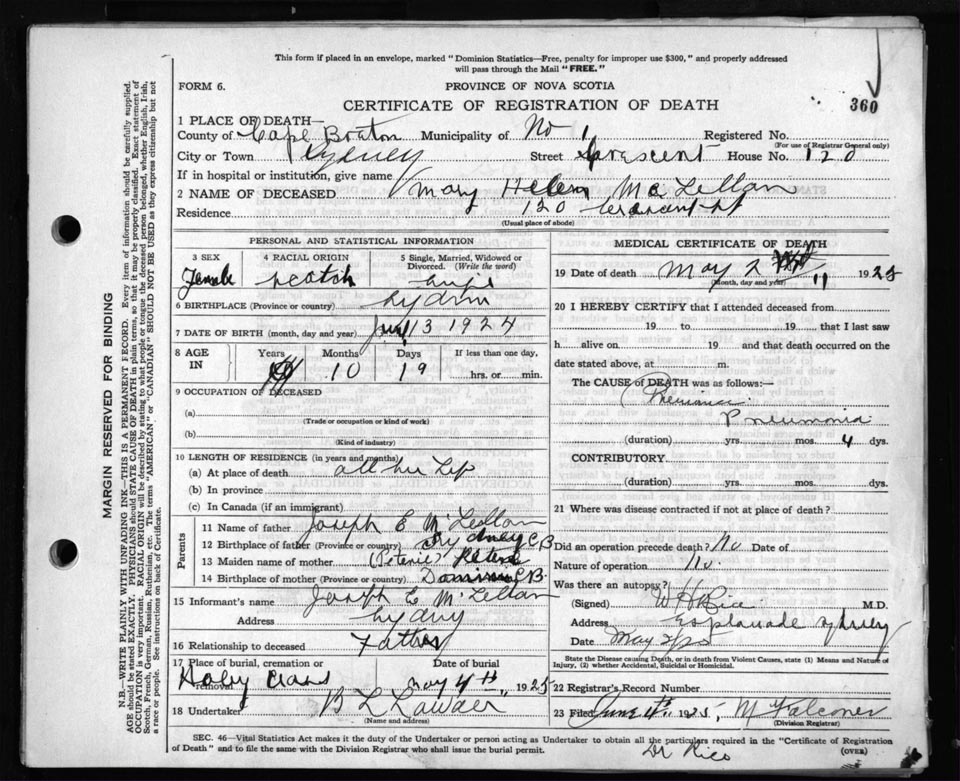 This form if placed in an envelope, marked "Dominion Statistics—Free, penalty for improper use $300," and properly addressed
will pass through the Mail "FREE."
FORM 6.
PROVINCE OF NOVA SCOTIA
CERTIFICATE OF REGISTRATION OF DEATH
360
1 PLACE OF DEATH—
County of Cape Breton Municipality of No 1 Registered No.
(For use of Registrar General only)
City or Town Sydney Street Crescent House No. 120
If in hospital or institution, give name
2 NAME OF DECEASED Mary Helen McLellan
Residence 120 Crescent St
(Usual place of abode)
PERSONAL AND STATISTICAL INFORMATION
3 SEX
Female
4 RACIAL ORIGIN
Scotch
5 Single, Married, Widowed or
Divorced. (Write the word)
6 BIRTHPLACE (Province or country) Sydney
7 DATE OF BIRTH (month, day and year) 13 1924
8 AGE
IN
Years
Months
10
Days
19
If less than one day,
hrs. or min.
9 OCCUPATION OF DECEASED
(a)
(Trade or occupation or kind of work)
(b)
(Kind of industry)
10 LENGTH OF RESIDENCE (in years and months)
(a) At place of death all her Life
(b) In province
(c) In Canada (if an immigrant)
Parents
11 Name of father Joseph E McLellan
12 Birthplace of father (Province or country) Sydney C B
13 Maiden name of mother (Peterie)
14 Birthplace of mother (Province or country) Dominion C B.
15 Informant's name Joseph E McLellan
Address Sydney
16 Relationship to deceased Father
17 Place of burial, cremation or
removal Holy Cross
Date of burial
May 4th 1925
18 Undertaker B L Lawder
(Name and address)
MEDICAL CERTIFICATE OF DEATH
19 Date of death May 2 1925
(Month, day and year)
20 I HEREBY CERTIFY that I attended deceased from
19 to 19 , that I last saw
h alive on 19 and that death occurred on the
date stated above, at m.
The CAUSE of DEATH was as follows:—
Pneumonia
(duration) yrs. mos. 4 dys.
CONTRIBUTORY
(duration) yrs. mos. dys.
21 Where was disease contracted if not at place of death?
Did an operation precede death? No Date of
Nature of operation No.
Was there an autopsy?
(Signed) W H Rice M.D.
Address Esplanade Sydney
Date May 2/25
State the Disease causing Death, or in death from Violent Causes, state (1) Means and Nature of
Injury, (2) whether Accidental, Suicidal or Homicidal.
22 Registrar's Record Number
23 Filed June 1925, M Falconer
(Division Registrar)
SEC. 46—Vital Statistics Act makes it the duty of the Undertaker or person acting as Undertaker to obtain all the particulars required in the "Certificate of Registration
of Death" and to file the same with the Division Registrar who shall issue the burial permit.
(OVER)
Dr Rice
MARGIN RESERVED FOR BINDING
N.B.—WRITE PLAINLY WITH UNFADING INK—THIS IS A PERMANENT RECORD. Every item of information should be carefully supplied.
AGE should be stated EXACTLY. PHYSICIANS should STATE CAUSE OF DEATH in plain terms, so that it may be properly classified. Exact statement of
OCCUPATION is very important. RACIAL ORIGIN will be described by stating to what people or tongue the deceased person belonged, whether English, Irish,
Scotch, French, German, Russian, Ruthenian, etc. The terms "AMERICAN" or "CANADIAN" SHOULD NOT BE USED as they express citizenship but not
a race or people. See instructions on back of Certificate.